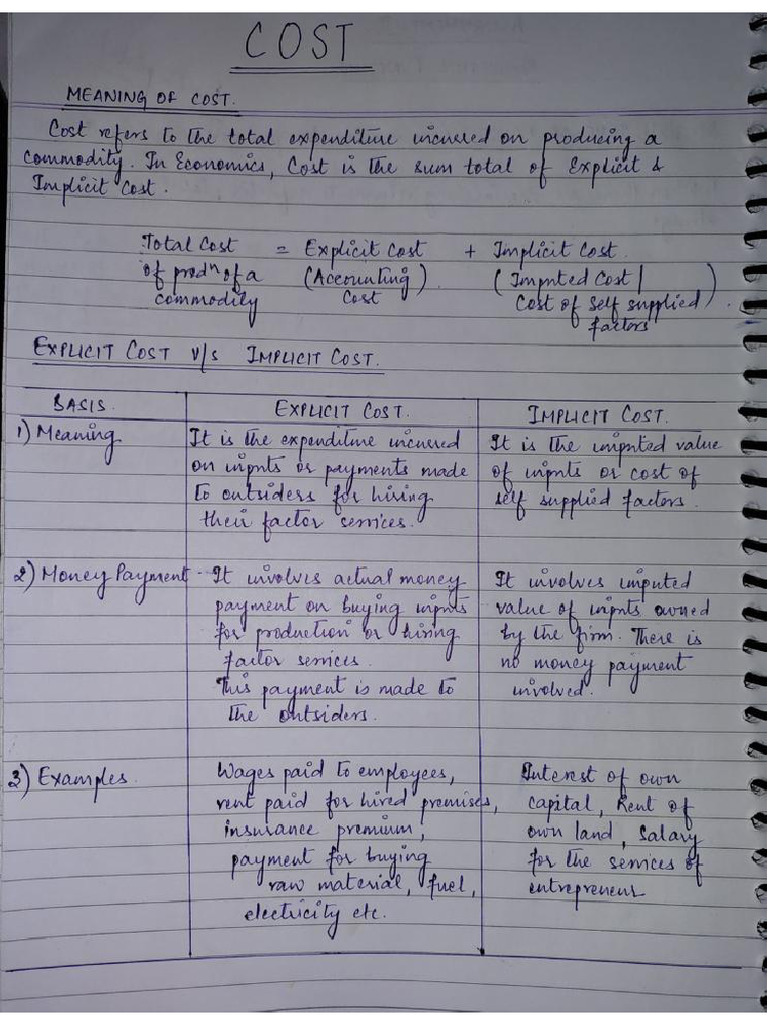 COST
MEANING OF COST.
Cost refers to the total expenditure incurred on producing a
commodity. In Economics, Cost is the sum total of Explicit &
Implicit Cost.
Total Cost = Explicit Cost + Implicit Cost.
of prodn of a (Accounting) (Imputed Cost |
commodity Cost Cost of self supplied) .
factors
EXPLICIT COST V/S IMPLICIT COST.
BASIS. EXPLICIT COST. IMPLICIT COST.
1) Meaning
It is the expenditure incurred
on inputs or payments made
to outsiders for hiring
their factor services.
It is the imputed value
of inputs or cost of
self supplied factors.
2) Money Payment -
It involves actual money
payment on buying inputs
for production or hiring
factor services.
This payment is made to
the outsiders.
It involves imputed
value of inputs owned
by the firm. There is
no money payment
involved.
3) Examples.
Wages paid to employees,
rent paid for hired premises,
insurance premium,
payment for buying
raw material, fuel,
electricity etc.
Interest of own
capital, Rent of
own land, Salary
for the services of
entrepreneur